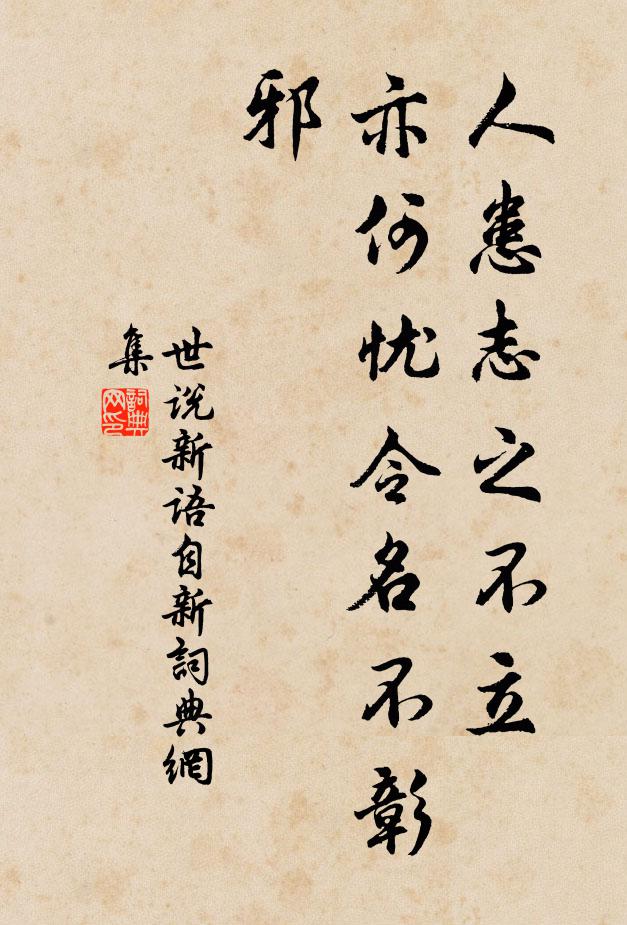 人患志之不立
亦何忧令名不彰
邪
世说新语自新詞典網
集
詞典
网印